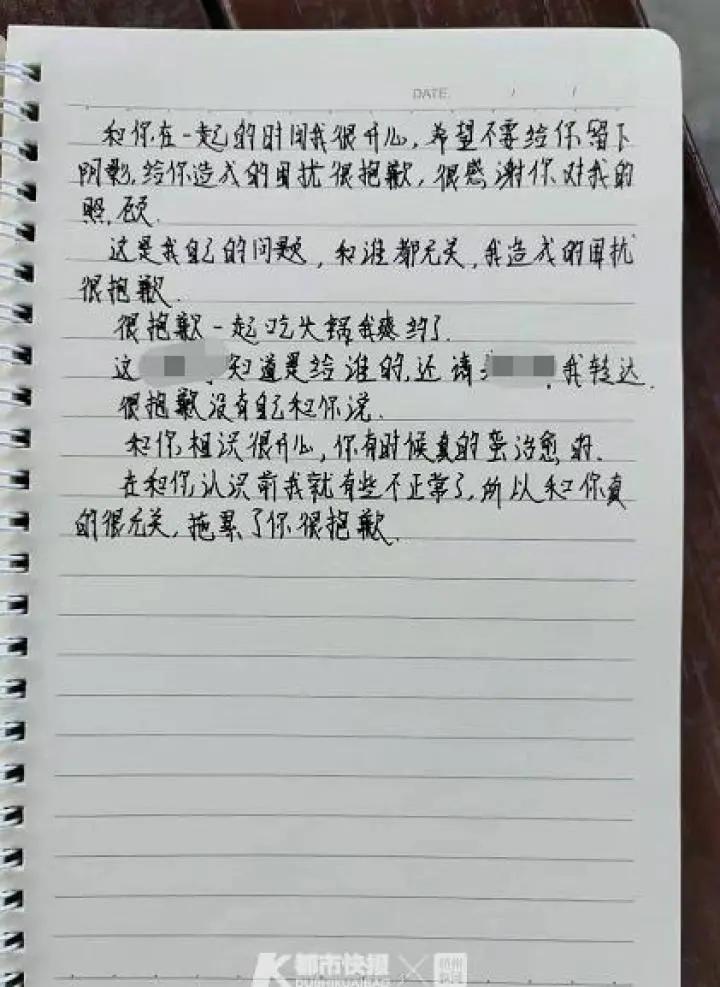 DATE / /
和你在一起的时间我很开心,希望不要给你留下
阴影,给你造成的困扰很抱歉,很感谢你对我的
照顾.
这是我自己的问题,和谁都无关,我造成的困扰
很抱歉.
很抱歉一起吃火锅我爽约了.
这 知道是给谁的,还请 我转达.
很抱歉没有自己和你说.
和你相识很开心,你有时候真的蛮治愈的.
在和你认识前我就有些不正常了,所以和你真
的很无关,拖累了你很抱歉.
都市快报
DUSHIKUAIBAO